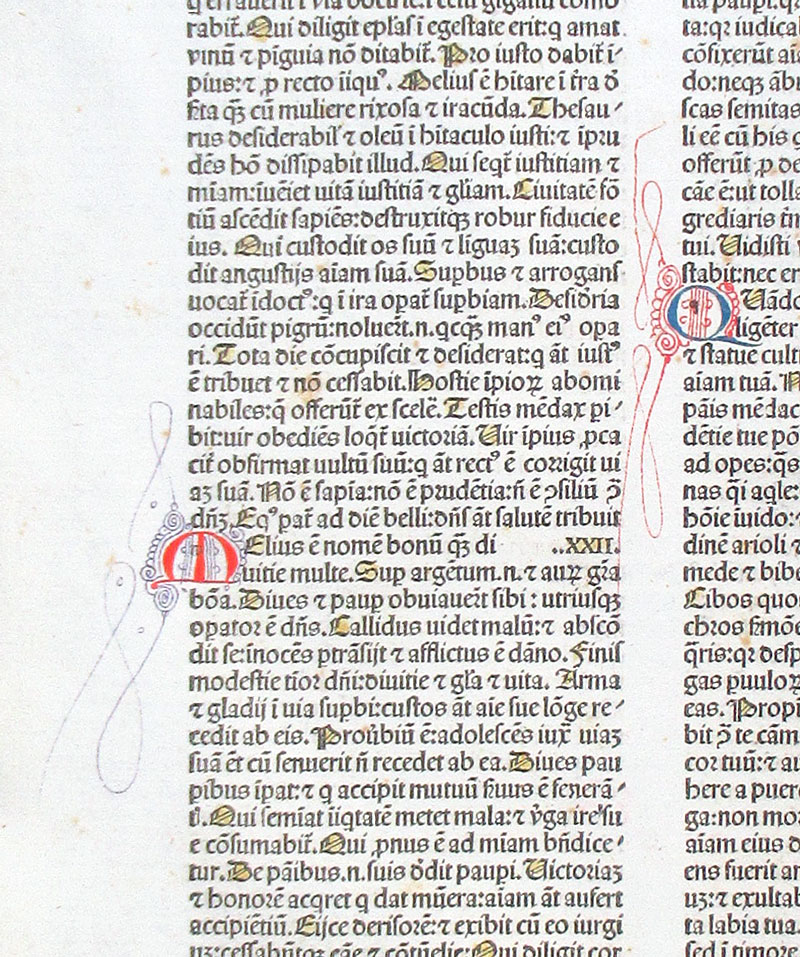 rabit̃. Qui diligit epłas ī egestate erit: q amat
vinū ⁊ pīguia nō ditabit̃. Pro iusto dabit̃ ī-
pius: ⁊ ꝓ recto iīquꝰ. Melius ē hītare ī t̃ra d̃
s̃ta qꝫ cū muliere rixosa ⁊ iracūda. Thesau-
rus desiderabil̃ ⁊ oleū ī hītaculo iusti: ⁊ īpru
dēs hō dissipabit illud. Qui seqt̃ iustitiam ⁊
miam: īuēiet uitā iustitiā ⁊ gl̃iam. Ciuitatē fō
tiū ascēdit sapiēs: destruxitqꝫ robur fiducie e
ius. Qui custodit os suū ⁊ līguaꝫ suā: custo
dit angustijs aīam suā. Supbus ⁊ arrogans
uocat̃ īdoctꝰ: q ī ira opat̃ supbiam. Desid̃ria
occidūt pigrū: noluer̃t .n. qcqꝫ manꝰ eiꝰ opa
ri. Tota die cōcupiscit ⁊ desiderat: q āt iustꝰ
ē tribuet ⁊ nō cessabit. Hostie īpioꝝ abomi
nabiles: q̄ offerūt̃ ex scelẽ. Testis mēdax pi-
bit: uir obediēs loqt̃ uictoriā. Uir īpius ꝓca
cit̃ obfirmat uultū suū: q āt rectꝰ ē corrigit ui
aꝫ suā. Nō ē sapīa: nō ē prudētia: ñ ē ɔsiliū ↄ̄
dñꝫ. Eqꝰ pat̃ ad diē belli: dñs āt salutē tribuit
Melius ē nomē bonū qꝫ di ..XXII.
uitie multe. Sup argētum .n. ⁊ auꝝ gr̃a
bōa. Diues ⁊ paup obuiauer̃t sibi: utriusqꝫ
opator ē dñs. Callidus uidet malū: ⁊ abscō
dit se: īnocēs ptrāsijt ⁊ afflictus ē dāno. Finis
modestie tīor dñi: diuitie ⁊ gl̃a ⁊ uita. Arma
⁊ gladij ī uia supbi: custos āt aīe sue lōge re-
cedit ab eis. Prou̇biū ē: adolescēs iux̃ uiaꝫ
suā et cū senuerit ñ recedet ab ea. Diues pau
pibus īpat: ⁊ q accipit mutuū s̃uus ē fenerā-
t̃. Qui semīat iīqtatē metet mala: ⁊ ṽga ire su
e cōsumabit̃. Qui ꝓnus ē ad miam bñdice-
tur. De pāibus .n. suis d̃dit paupi. Uictoriaꝫ
⁊ honorē acqret q dat mūera: aīam āt aufert
accipiētiū. Eijce derisorē: ⁊ exibit cū eo iurgi
ta: qꝛ iudica
cōfixerūt aīa
do: neqꝫ āb
scas semitas
li eē cū his q
offerūt ꝓ de
cāe ē: ut tolla
grediaris t̃m
tui. Uidisti
stabit: nec er
Quādo
ligēter
⁊ statue cult
aīam tuā. N
pāis mēdac
dētie tue pō
ad opes: qs
nas qi aqle:
hōie īuido:
dinē arioli ⁊
mede ⁊ bibe
Cibos quo
chros s̃mōe
q̃ris: qꝛ desp
gas puuloꝝ
eas. Propi
bit ↄ̄ te cām
cor tuū: ⁊ au
here a puer
ga: non mor
aīam eius d
ens fuerit an
uꝫ: ⁊ exultab
ta labia tua.
sed ī timore